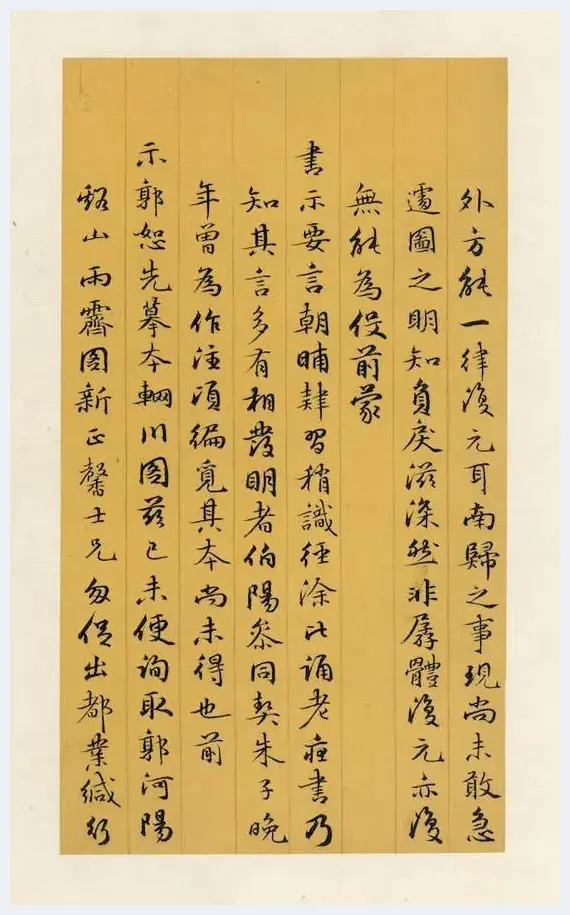 外方能一律復元耳南歸之事現尚未敢急
遽圖之明知負戾滋深然非孱體復元亦復
無能為役前蒙
書示要言朝晡肄習稍識徑涂比誦老莊書乃
知其言多有相發明者伯陽參同契朱子晚
年曾為作注頃編覓其本尚未得也前
示郭恕先摹本輞川圖茲已未便詢取郭河陽
谿山雨霽圖新正馨士兄匆促出都業緘